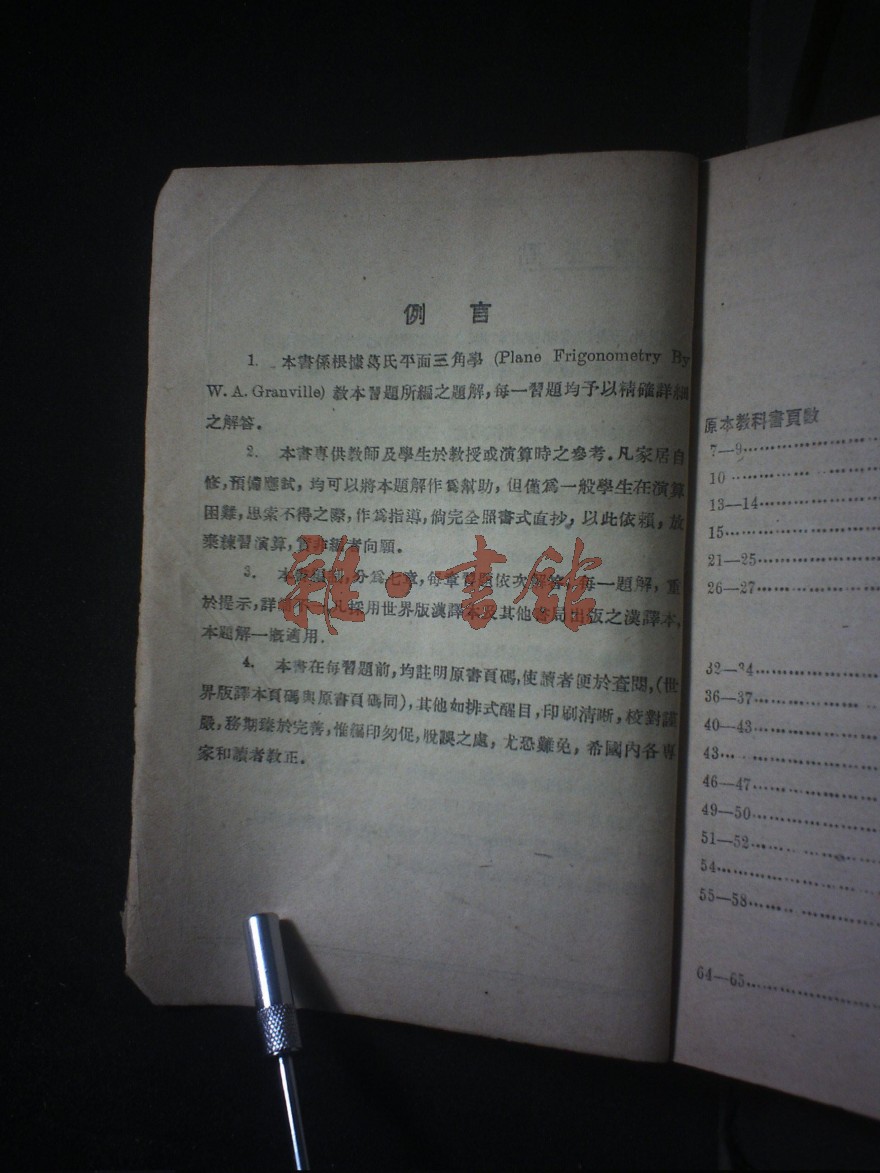 例 言
1. 本書係根據葛氏平面三角學 (Plane Frigonometry By
W. A. Granville) 敎本習題所編之題解，每一習題均予以精確詳細
之解答．
2. 本書專供敎師及學生於敎授或演算時之參考．凡家居自
修，預備應試，均可以將本題解作爲幫助，但僅爲一般學生在演算
困難，思索不得之際，作爲指導，倘完全照書式直抄，以此依賴，放
棄練習演算，實非編者向願．
3. 本書編制，分爲七章，每章習題依次解答，每一題解，重
於提示，詳細 凡採用世界版漢譯本及其他書局出版之漢譯本，
本題解一槪適用．
4. 本書在每習題前，均註明原書頁碼，使讀者便於查閱，(世
界版譯本頁碼與原書頁碼同)，其他如排式醒目，印刷清晰，校對謹
嚴，務期臻於完善，惟編印匆促，脫誤之處，尤恐難免，希國內各專
家和讀者敎正．
雜·書館
原本敎科書頁數
7—9
10
13—14
15
21—25
26—27
32—34
36—37
40—43
43
46—47
49—50
51—52
54
55—58
64—65